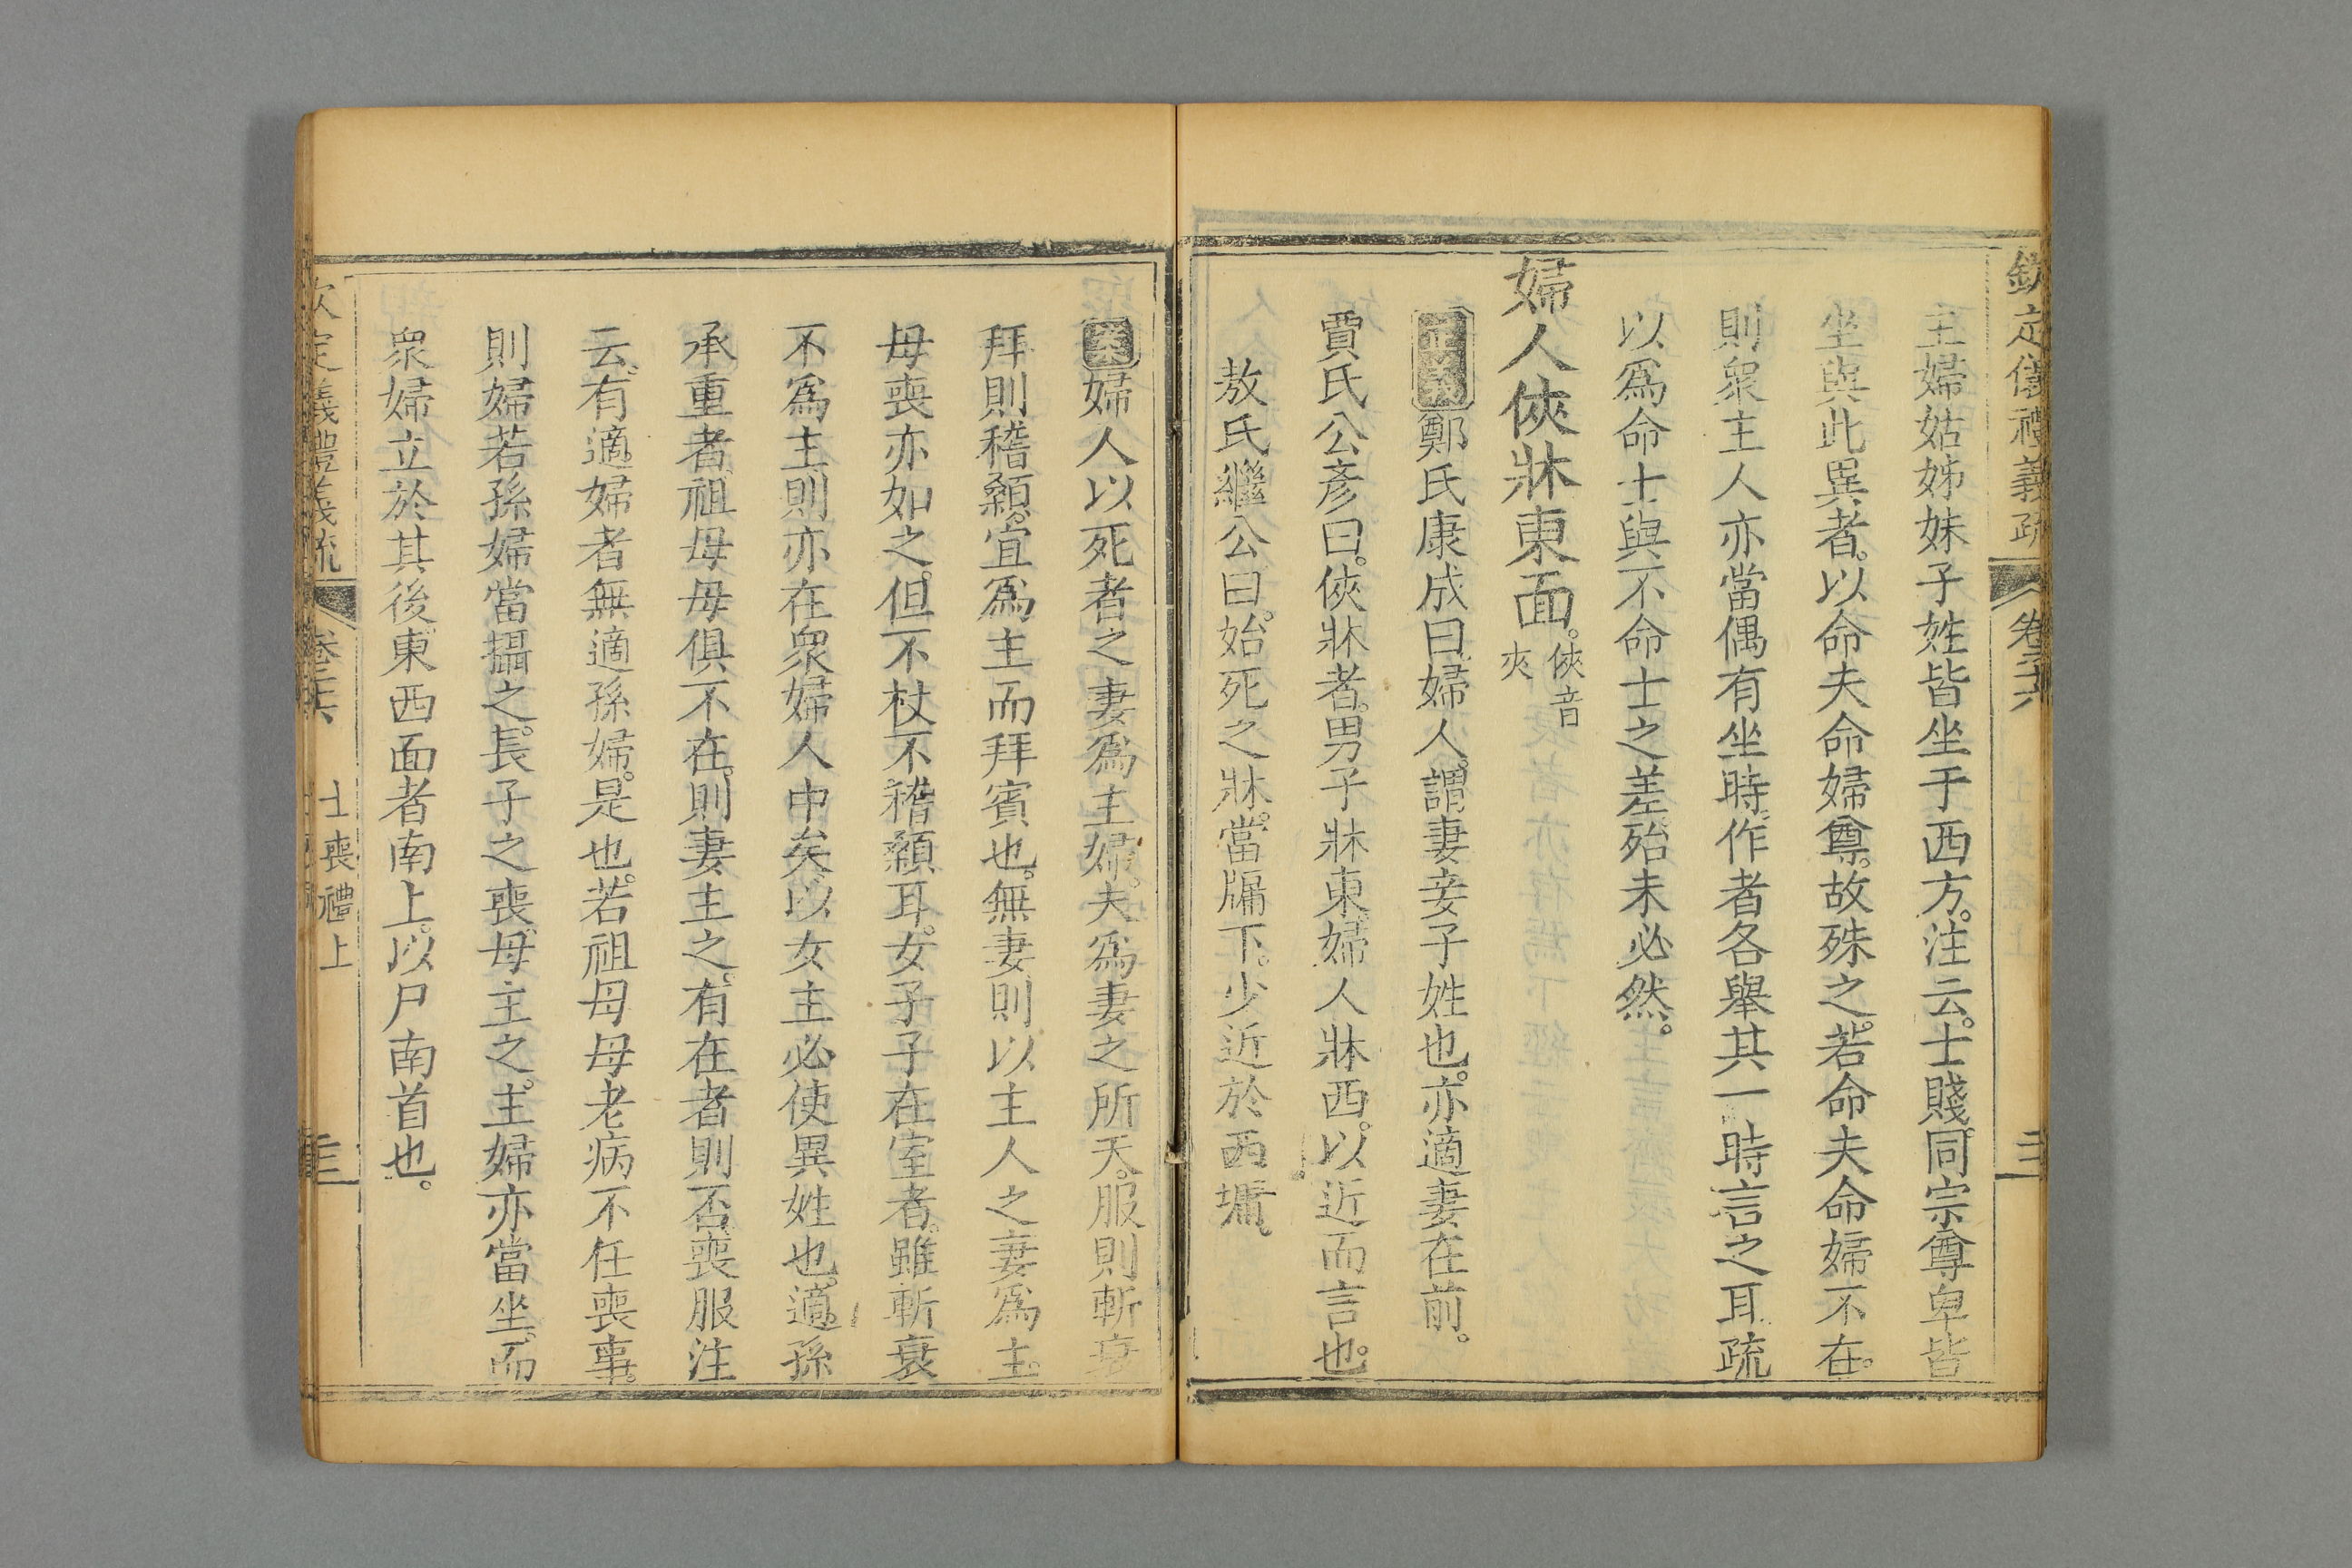 欽定儀禮義疏 卷二六 三
主婦姑姊妹子姓皆坐于西方。注云。士賤。同宗尊卑皆
坐與此異者。以命夫命婦尊。故殊之。若命夫命婦不在。
則衆主人亦當偶有坐時。作者各舉其一時言之耳疏
以爲命士與不命士之差殆未必然。
婦人俠牀東面。俠音夾
正義鄭氏康成曰。婦人。謂妻妾子姓也。亦適妻在前。
賈氏公彥曰。俠牀者。男子牀東。婦人牀西。以近而言也。
敖氏繼公曰。始死之牀。當牖下。少近於西墉。
案婦人以死者之妻爲主婦。夫爲妻之所天。服則斬衰
拜則稽顙。宜爲主而拜賓也。無妻則以主人之妻爲主。
母喪亦如之。但不杖不稽顙耳。女子子在室者。雖斬衰
不爲主則亦在衆婦人中矣以女主必使異姓也。適孫
承重者。祖母母俱不在。則妻主之。有在者則否。喪服注
云。有適婦者無適孫婦。是也。若祖母母老病不任喪事。
則婦若孫婦當攝之。長子之喪。母主之。主婦亦當坐。而
衆婦立於其後。東西面者南上。以尸南首也。
欽定儀禮義疏 卷二六 士喪禮上 三